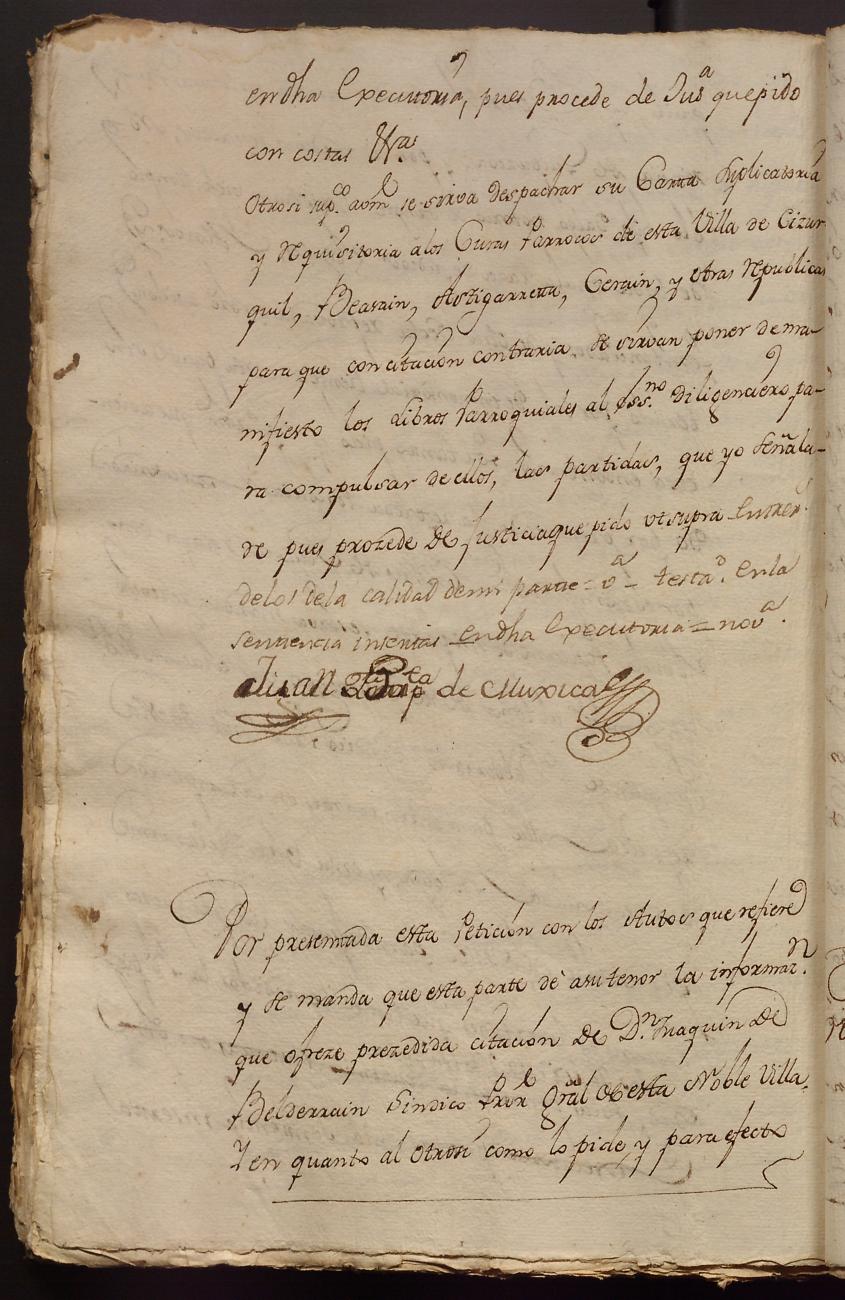 en dha Executoria, pues procede de Jus.ª que pido
con costas &.ª
Otrosi sup.co a vm se sirva despachar su Carta suplicatoria
y requisitoria a los Curas Parrocos de esta Villa de Cizur-
quil, Beasain, Astigarreta, Cerain, y otras republicas
para que con citacion contraria se sirvan poner de ma-
nifiesto los Libros Parroquiales al ess.no diligenciero pa-
ra compulsar de ellos, las partidas, que yo señala-
re pues prozede de Justicia que pido ut supra = Entre r.s
de los de la calidad de mi parte = v.ª = testa.º en la
sentencia insertas en dha Executoria = no v.ª
Juan Bap.ta de Muxica
Por presentada esta Peticion con los Autos que refiere
y se manda que esta parte dè a su tenor la informaz.n
que ofreze prezedida citacion de D.n Juaquin de
Belderrain Sindico Pror Gral de esta Noble Villa,
Y en quanto al otrosi como lo pide, y para efecto